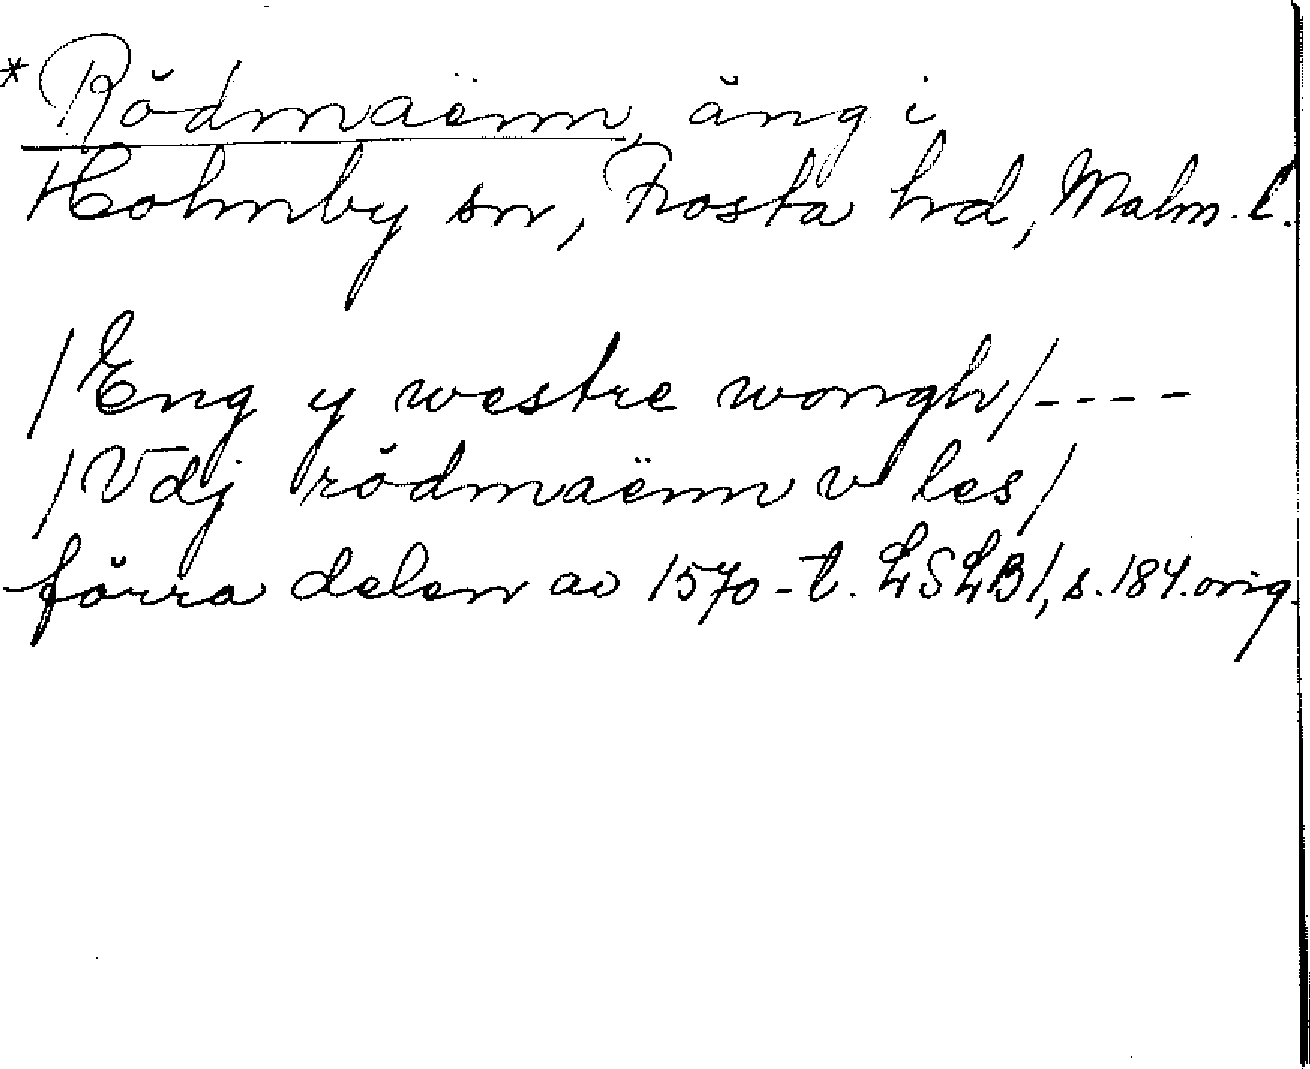 *Rödmaënn, äng i
Holmby sn, Frosta hd, Malm. l.
/Eng y westre wongh/----
/Vdj rödmaënn v les/
förra delen av 1570-t. LSLB1, s.184.orig.